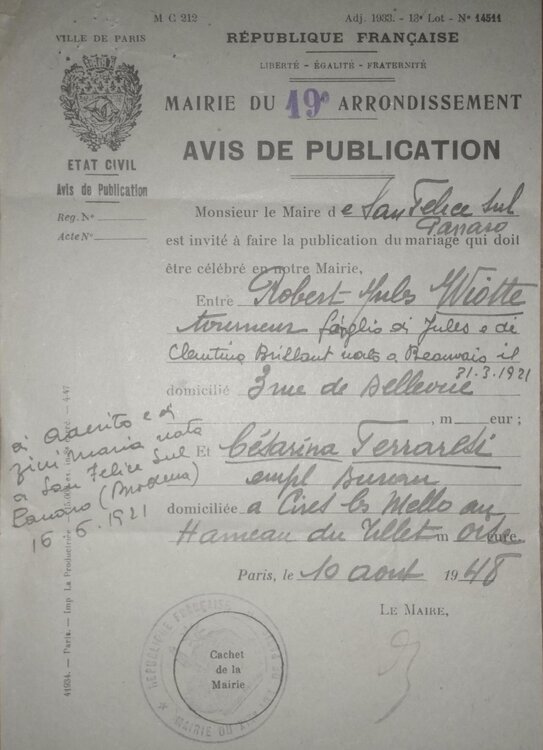 M C 212
Adj. 1933. - 13e Lot - No 14511
VILLE DE PARIS
RÉPUBLIQUE FRANÇAISE
LIBERTÉ - ÉGALITÉ - FRATERNITÉ
MAIRIE DU 19e ARRONDISSEMENT
AVIS DE PUBLICATION
ETAT CIVIL
Avis de Publication
Reg. No
Acte No
Monsieur le Maire de San Felice Sul
Panaro
est invité à faire la publication du mariage qui doit
être célébré en notre Mairie,
Entre Robert Jules Wiotte
tourneur figlio di Jules e di
Clentina Brillant nato a Beauvais il
31.3.1921
domicilié 3 rue de Bellevue
, m eur ;
Et Césarina Ferraresi
empl Bureau
domiciliée a Cires les Mello au
Hameau du Tillet m Oise eure.
Paris, le 10 aout 1948
LE MAIRE,
di Aderito e di
Zini Maria nata
a San Felice Sul
Panaro (Modena)
16-6-1921
Cachet
de la
Mairie
RÉPUBLIQUE FRANÇAISE
MAIRIE DU
41934. - Paris. - Imp La Productrice 4-47